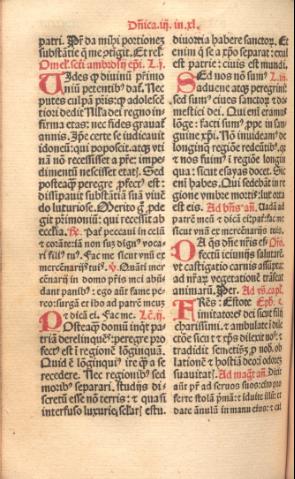 Dn̄ica .iij. in .xl.
patri. Pr̄ da mihi portionez
substātie q̄ me ɔtigit. Et rel.
Omel. scti ambrosij ep̄i. L.j.
Uides q̄ diuinū p̄rimo
niū petentibꝰ daf. Nec
putes culpā p̄ris: q̄ adolescē
tiori dedit. Nulla dei regno in-
firma etas: nec fides grauaf
annis. Ipe certe se iudicauit
idoneū: qui poposcit. atqz vti
nā nō recessisset a p̄re: impe-
dimentū nescisset etatꝭ. Sed
posteaq̄ peregre ꝓfectꝰ est:
dissipauit substātiā suā viuē
do luxuriose. Merito q̄ ꝓde-
git p̄rimoniū: qui recessit ab
ecclīa. R̄. Pat̄ peccaui in celū
et corā te: iā non suz dignꝰ voca-
ri filiꝰ tuꝰ. Fac me sicut vnū ex
mercēnarijs tuꝰ. V̄. Quāti mer
cēnarij in domo p̄ris mei abū-
dant panibꝰ: ego aūt fame pe-
reo: surgā et ibo ad patrē meuz
et dicā ei. Fac me. Lc̄. ij.
Posteaq̄ domū inqt patri-
ā derelinquēsꝰ: peregre pro
fectꝰ est ī regionē lōginquā.
Quid ē lōginquiꝰ ire q̄ a se
recedere. Nec regionibꝰ sed
moribꝰ separari. studijs dis-
cretū esse nō terris: et quasi
interfuso luxurie, estu
diuortia habere sanctoꝝ. Et
enim q̄ se a xp̄o separat: exul
est patrie: ciuis est mundi.
Sed nos nō sumꝰ L.
aduene atqz peregrini:
sed sumꝰ ciues sanctoꝝ et do-
mestici dei. Qui eni eramꝰ
lōge: facti sumꝰ ꝓpe in san-
guine xp̄i. Nō inuideamꝰ de
longinq̄ regiōe redeūtibꝰ. q̄
et nos fuimꝰ ī regiōe longin
qua: sicut esayas docet. Sic
eni habes. Qui sedebāt in re
gione vmbre mortis: lux orta
est eis. Ad bn̄s añ. Uadā ad
patrē meū et dicā ei: pat̄ fac me
sicut vnū ex mercēnarijs tuis.
Q q̄s dn̄e nr̄is effectu ieiunijs salutarē
vt castigatio carnis assūpta
ad nr̄aꝝ vegetationē trāseat
animarū. Per. Ad vs̄. capl.
Fr̄es: Estote Eph. v.
imitatores dei sicut filij
charissimi. et ambulate ī dile
ctōe sicut et xp̄s dilexit nos: et
tradidit semetipm̄ ꝓ nob̄. ob
latiōnē et hostiā deo ī odorez
suauitatꝭ. Ad maḡt añ. Dixit
aūt pr̄ ad seruos suos: cito ꝓ-
ferte stolā p̄mā et iduite illū: et
date anulū in manu eiusꝰ: et cal